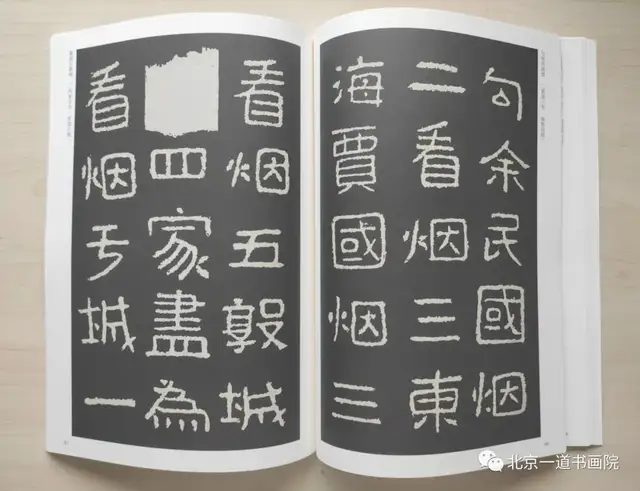 句余民國烟
二看烟三東
海賈國烟三
看烟五敦城
四家盡為
看烟亏城一
北京一道书画院